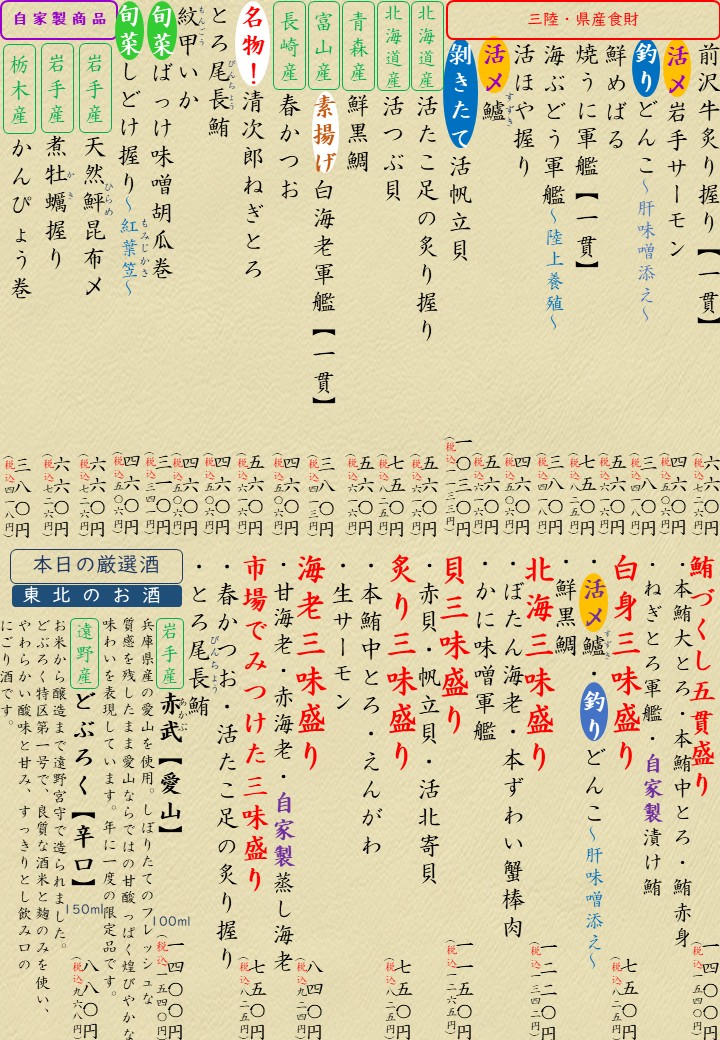 三陸・県産食財
前沢牛炙り握り【一貫】 六六〇円
(税込七二六円)
活〆岩手サーモン 四六〇円
(税込五〇六円)
釣りどんこ~肝味噌添え~ 三八〇円
(税込四一八円)
鮮めばる 五六〇円
(税込六一六円)
焼うに軍艦【一貫】 七五〇円
(税込八二五円)
海ぶどう軍艦~陸上養殖~ 三八〇円
(税込四一八円)
活ほや握り 四六〇円
(税込五〇六円)
活〆鱸 五六〇円
すずき
(税込六一六円)
剝きたて活帆立貝 一〇三〇円
(税込一一三三円)
北海道産 活たこ足の炙り握り 五六〇円
(税込六一六円)
北海道産 活つぶ貝 七五〇円
(税込八二五円)
青森産 鮮黒鯛 五六〇円
(税込六一六円)
富山産 素揚げ白海老軍艦【一貫】 三八〇円
(税込四一三円)
長崎産 春かつお 四六〇円
(税込五〇六円)
名物!清次郎ねぎとろ 五六〇円
(税込六一六円)
とろ尾長鮪 四六〇円
びんちょう
(税込五〇六円)
紋甲いか 四六〇円
もんごう
(税込五〇六円)
旬菜ばっけ味噌胡瓜巻 三一〇円
(税込三四一円)
旬菜しどけ握り~紅葉笠~ 四六〇円
もみじかさ
(税込五〇六円)
自家製商品
岩手産 天然鮃昆布〆 六六〇円
ひらめ
(税込七二六円)
岩手産 煮牡蠣握り 六六〇円
かき
(税込七二六円)
栃木産 かんぴょう巻 三八〇円
(税込四一八円)
鮪づくし五貫盛り
・本鮪大とろ・本鮪中とろ・鮪赤身
・ねぎとろ軍艦・自家製漬け鮪
白身三味盛り 七五〇円
(税込八二五円)
・活〆鱸・釣りどんこ~肝味噌添え~
すずき
・鮮黒鯛
北海三味盛り 一二二〇円
(税込一三四二円)
・ぼたん海老・本ずわい蟹棒肉
・かに味噌軍艦
貝三味盛り 一一五〇円
(税込一二六五円)
・赤貝・帆立貝・活北寄貝
炙り三味盛り 七五〇円
(税込八二五円)
・本鮪中とろ・えんがわ
・生サーモン
海老三味盛り 八四〇円
(税込九二四円)
・甘海老・赤海老・自家製蒸し海老
市場でみつけた三味盛り 七五〇円
(税込八二五円)
・春かつお・活たこ足の炙り握り
・とろ尾長鮪
びんちょう
本日の厳選酒
東北のお酒
岩手産 赤武【愛山】 100ml 一四〇〇円
あかぶ
(税込一五四〇円)
兵庫県産の愛山を使用。しぼりたてのフレッシュな
質感を残したまま愛山ならではの甘酸っぱく煌びやかな
味わいを表現しています。年に一度の限定品です。
遠野産 どぶろく【辛口】 150ml 八八〇円
(税込九六八円)
お米から醸造まで遠野宮守で造られました。
どぶろく特区第一号で、良質な酒米と麹のみを使い、
やわらかい酸味と甘み、すっきりとし飲み口の
にごり酒です。